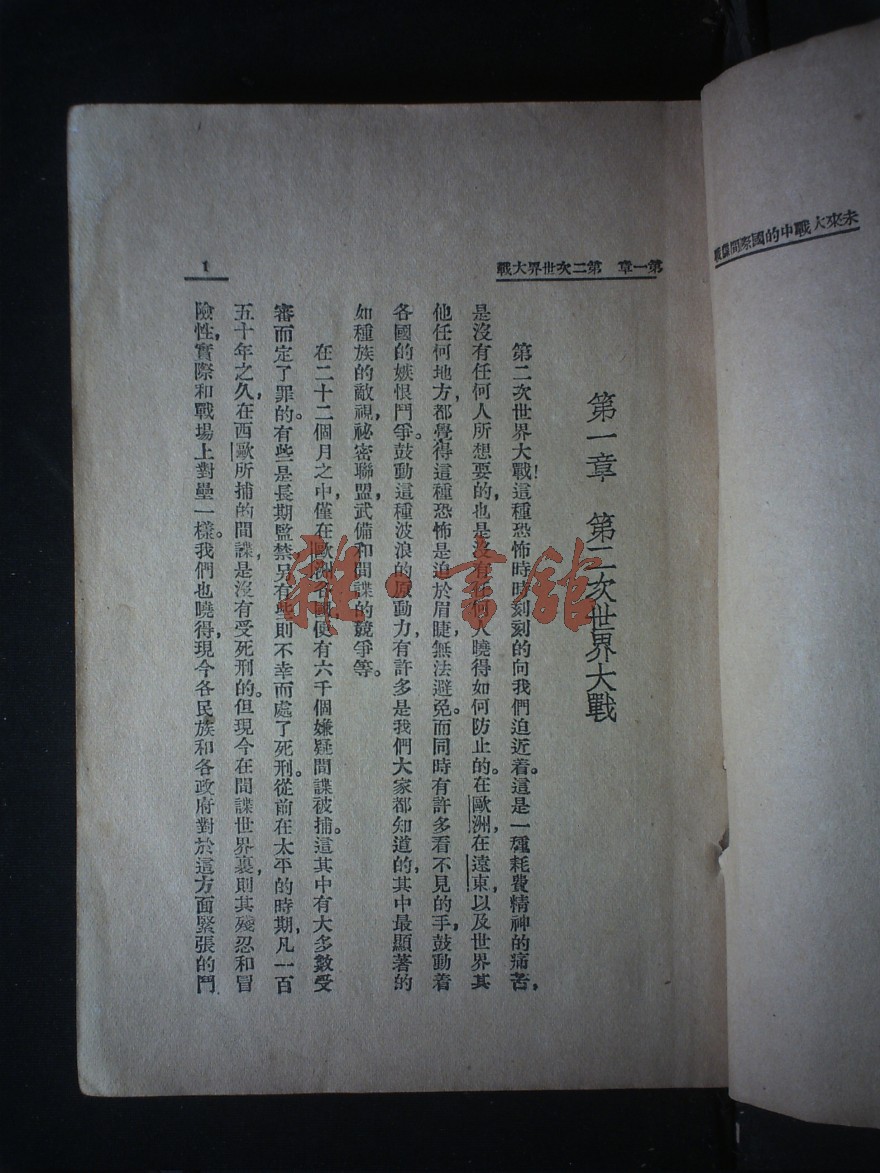 未來大戰中的國際間諜戰
第一章 第二次世界大戰
1
第一章 第二次世界大戰
第二次世界大戰!這種恐怖時時刻刻的向我們迫近着。這是一種耗費精神的痛苦,
是沒有任何人所想要的,也是沒有任何人曉得如何防止的。在歐洲,在遠東,以及世界其
他任何地方,都覺得這種恐怖是迫於眉睫,無法避免。而同時有許多看不見的手,鼓動着
各國的嫉恨鬥爭。鼓動這種波浪的原動力,有許多是我們大家都知道的,其中最顯著的
如種族的敵視,祕密聯盟,武備和間諜的競爭等。
在二十二個月之中,僅在歐洲各國,便有六千個嫌疑間諜被捕。這其中有大多數受
審而定了罪的。有些是長期監禁,另有些則不幸而處了死刑。從前在太平的時期,凡一百
五十年之久,在西歐所捕的間諜,是沒有受死刑的。但現今在間諜世界裏,則其殘忍和冒
險性,實際和戰場上對壘一樣。我們也曉得,現今各民族和各政府對於這方面緊張的鬥
雜·書館